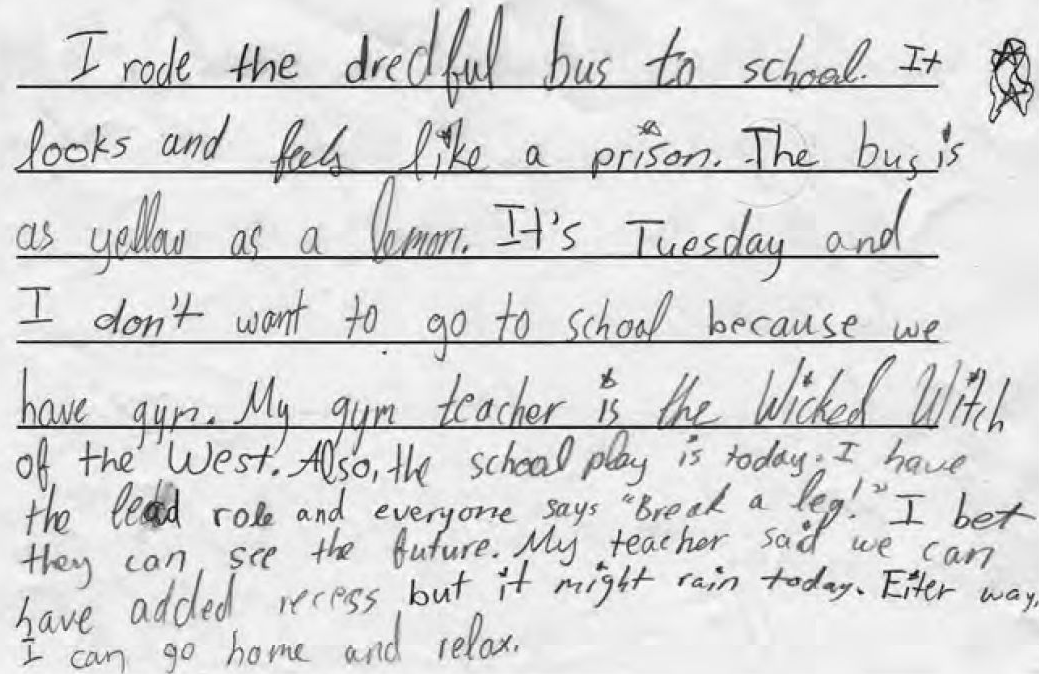 I rode the dredful bus to school. It
looks and feels like a prison. The bus is
as yellow as a lemon. It's Tuesday and
I don't want to go to school because we
have gym. My gym teacher is the Wicked Witch
of the West. Also, the school play is today. I have
the lead role and everyone says "Break a leg!" I bet
they can see the future. My teacher said we can
have added recess but it might rain today. Eiter way,
I can go home and relax.